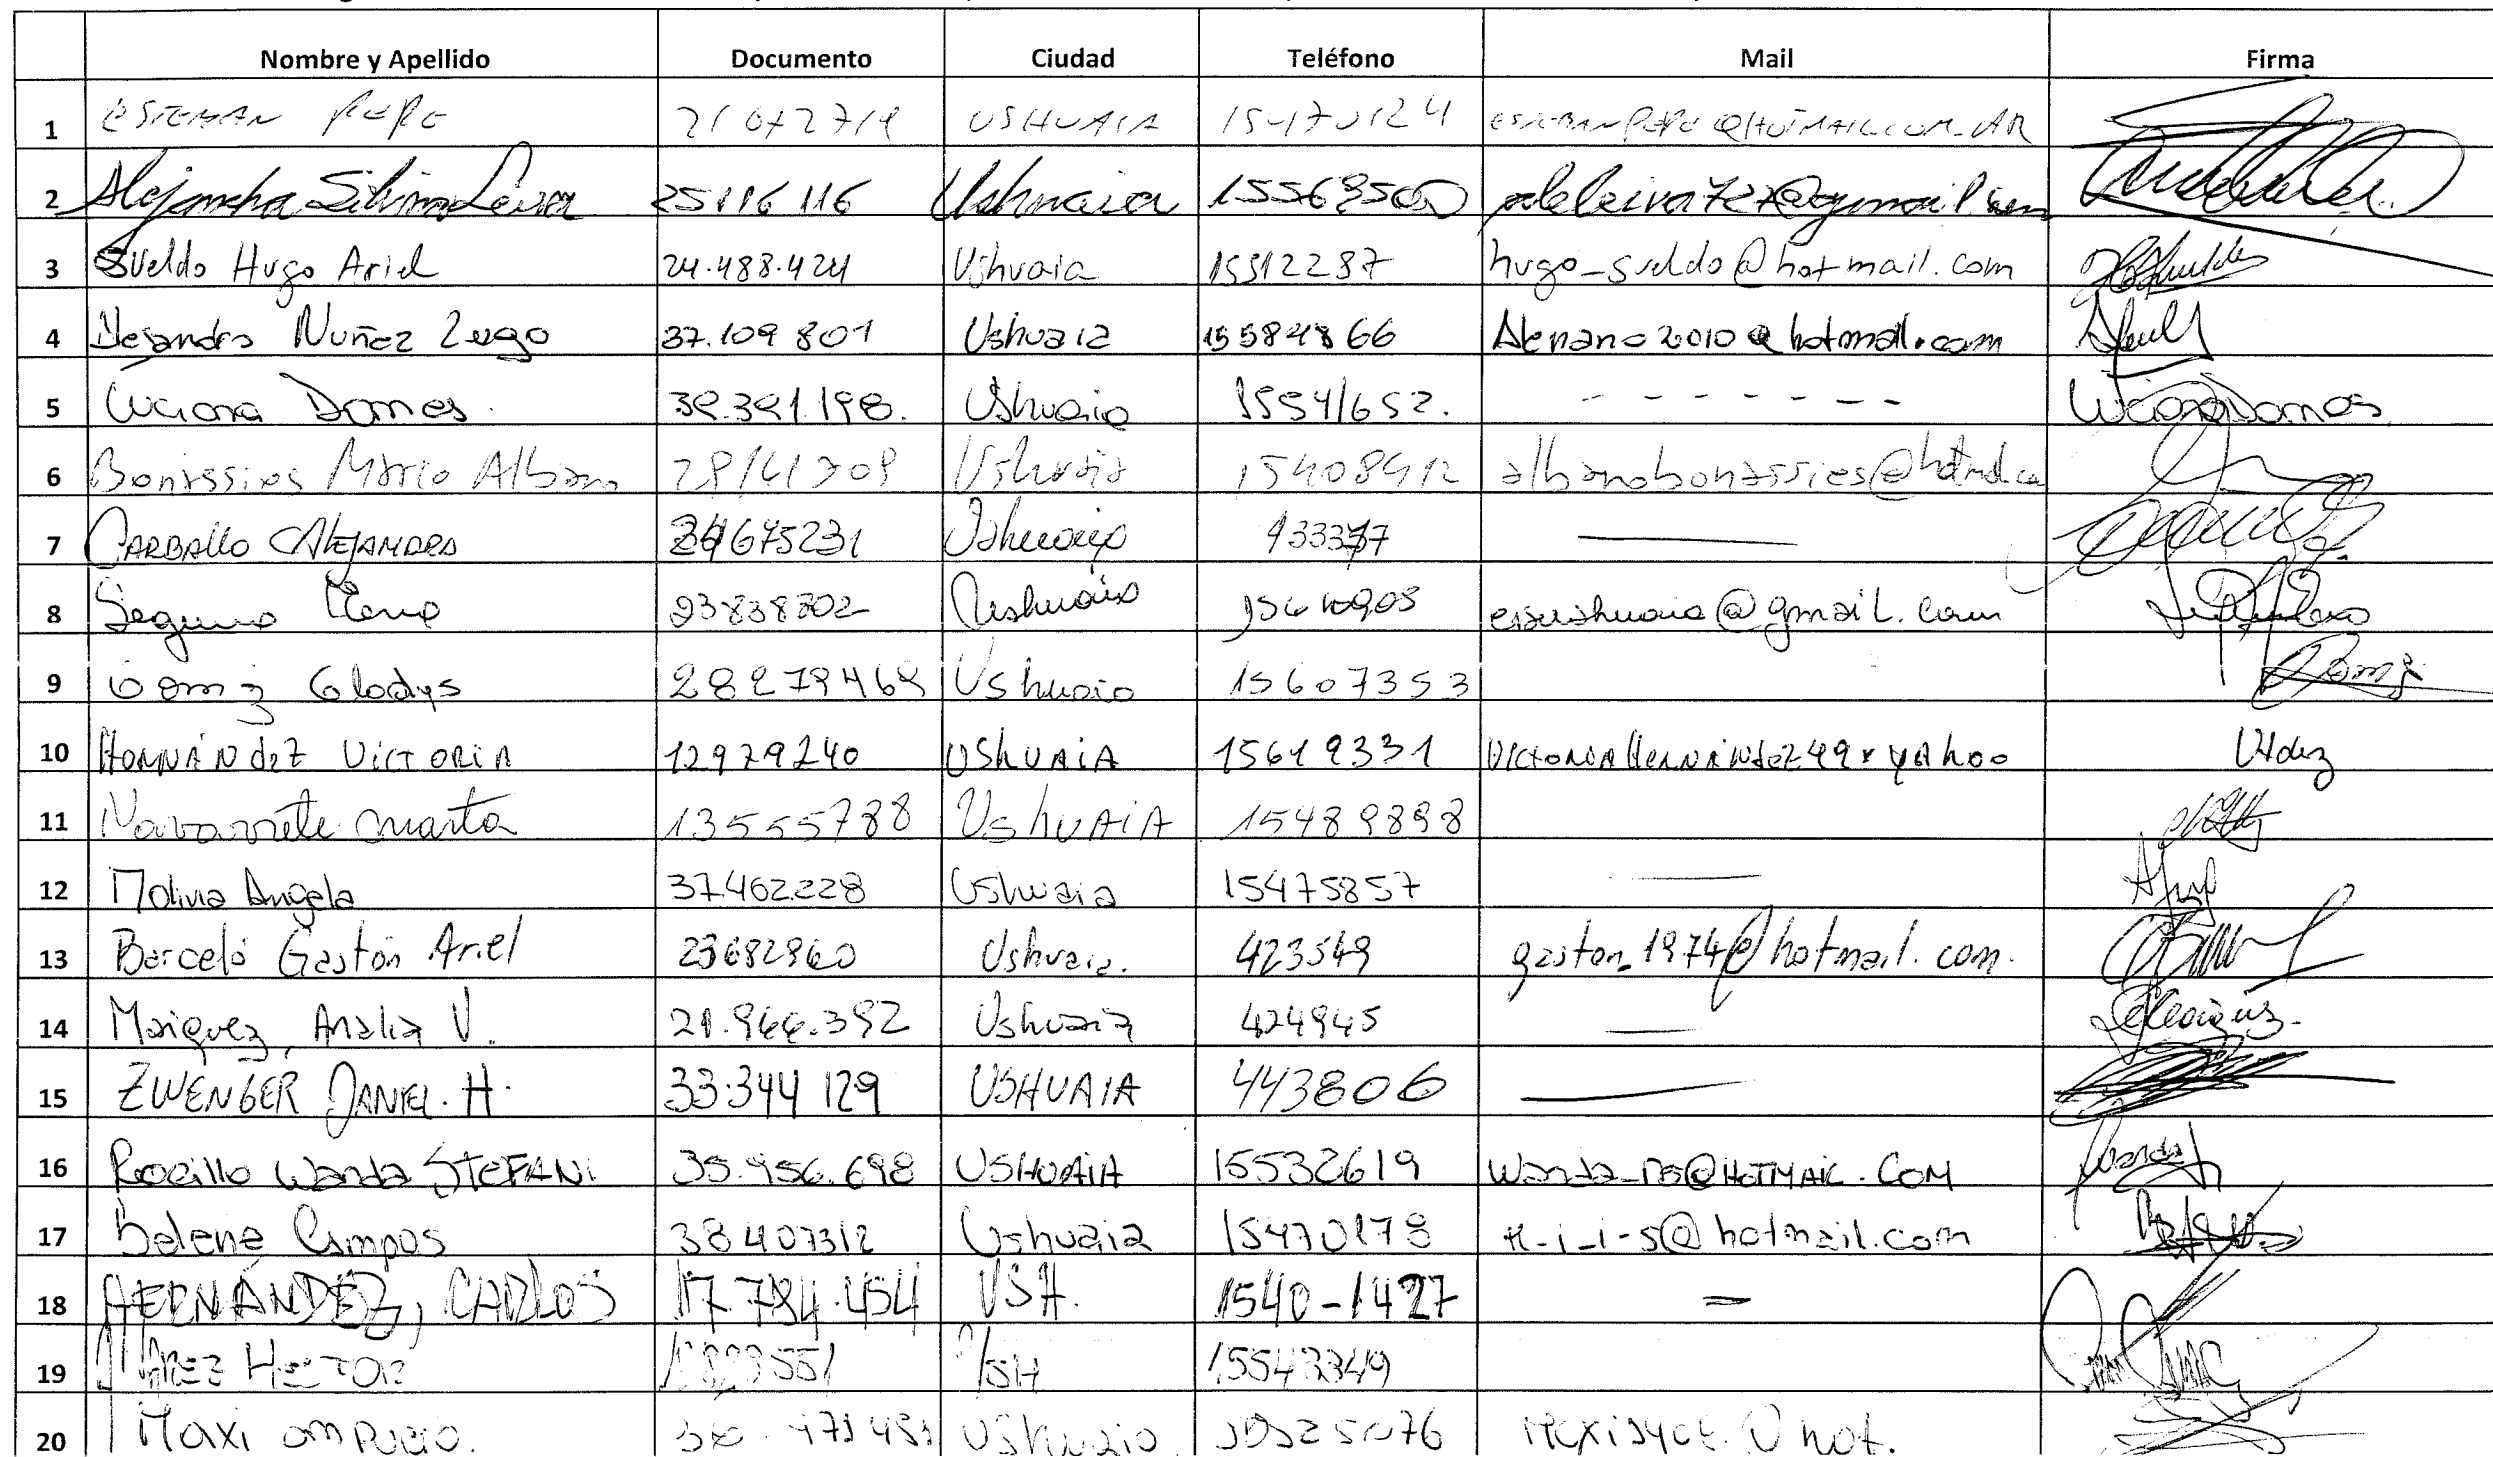 Nombre y Apellido Documento Ciudad Teléfono Mail Firma
1 ESTEBAN PEPE 21072719 USHUAIA 15470124 ESTEBANPEPE@HOTMAIL.COM.AR
2 Alejandra Silvina Leiva 25116116 Ushuaia 15563500 aleleiva727@gmail.com
3 Sueldo Hugo Ariel 24.488.424 Ushuaia 15512287 hugo_sueldo@hotmail.com
4 Alejandro Nuñez Lugo 37.109 801 Ushuaia 15584866 Alenano2010@hotmail.com
5 Luciana Damos. 39.391.198. Ushuaia 15541652. - - - - - - - Luciana Damos
6 Bonassies Mario Albano 28141308 Ushuaia 15408412 albanobonassies@
7 CARBALLO ALEJANDRA 24675231 Ushuaia —
8 Elena 23838302 Ushuaia @gmail.com
9 Gomez Gladys 28279468 Ushuaia 15607353
10 HERNÁNdEZ VICTORIA 12979240 USHUAIA 15619331 VICTORIAHERNANdEZ49 yAhoo
11 Navarrete Marta 13555788 UshuAiA 15489898 —
12 Molina Angela 37.462.228 Ushuaia 15475857 —
13 Barceló Gastón Ariel 23682960 Ushuaia. 423549 gaston_1974@hotmail.com.
14 Maiquez, Analia V. 21.966.392 Ushuaia 424945 —
15 ZWENGER DANIEL. H. 33.344 129 USHUAIA 443806 —
16 Wanda STEFANI 35.956.698 USHUAIA 15532619 @HOTMAIL.COM
17 Belene Campos 38407312 Ushuaia 15470178 @hotmail.com
18 HERNÁNDEZ, CARLOS 17.784.454 USH. 1540-1427 —
19 HECTOR USH 15543349
20 Maxi Ushuaia